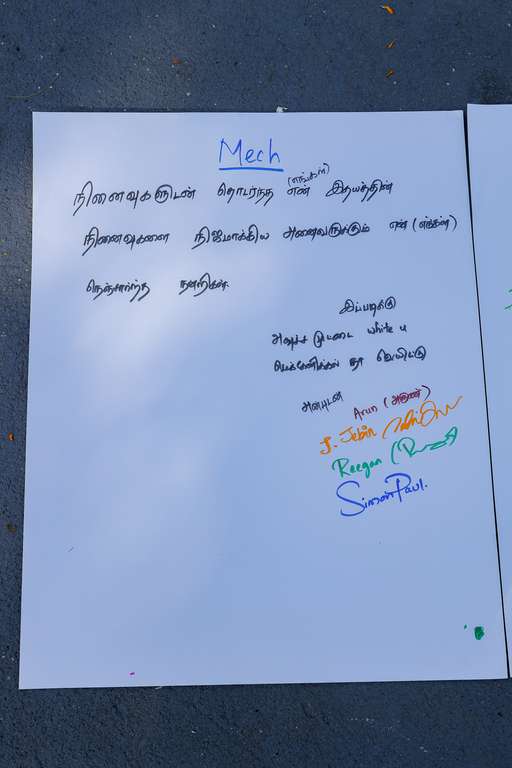 Mech
நினைவுகளுடன் தொடர்ந்த (எங்கள்) என் இதயத்தின்
நினைவுகளை நிஜமாக்கிய அனைவருக்கும் என் (எங்கள்)
நெஞ்சார்ந்த நன்றிகள்.
இப்படிக்கு
white
மெக்கானிக்கல்
அன்புடன்
Arun (அருண்)
J. Jebin
Reegan
Simon Paul.